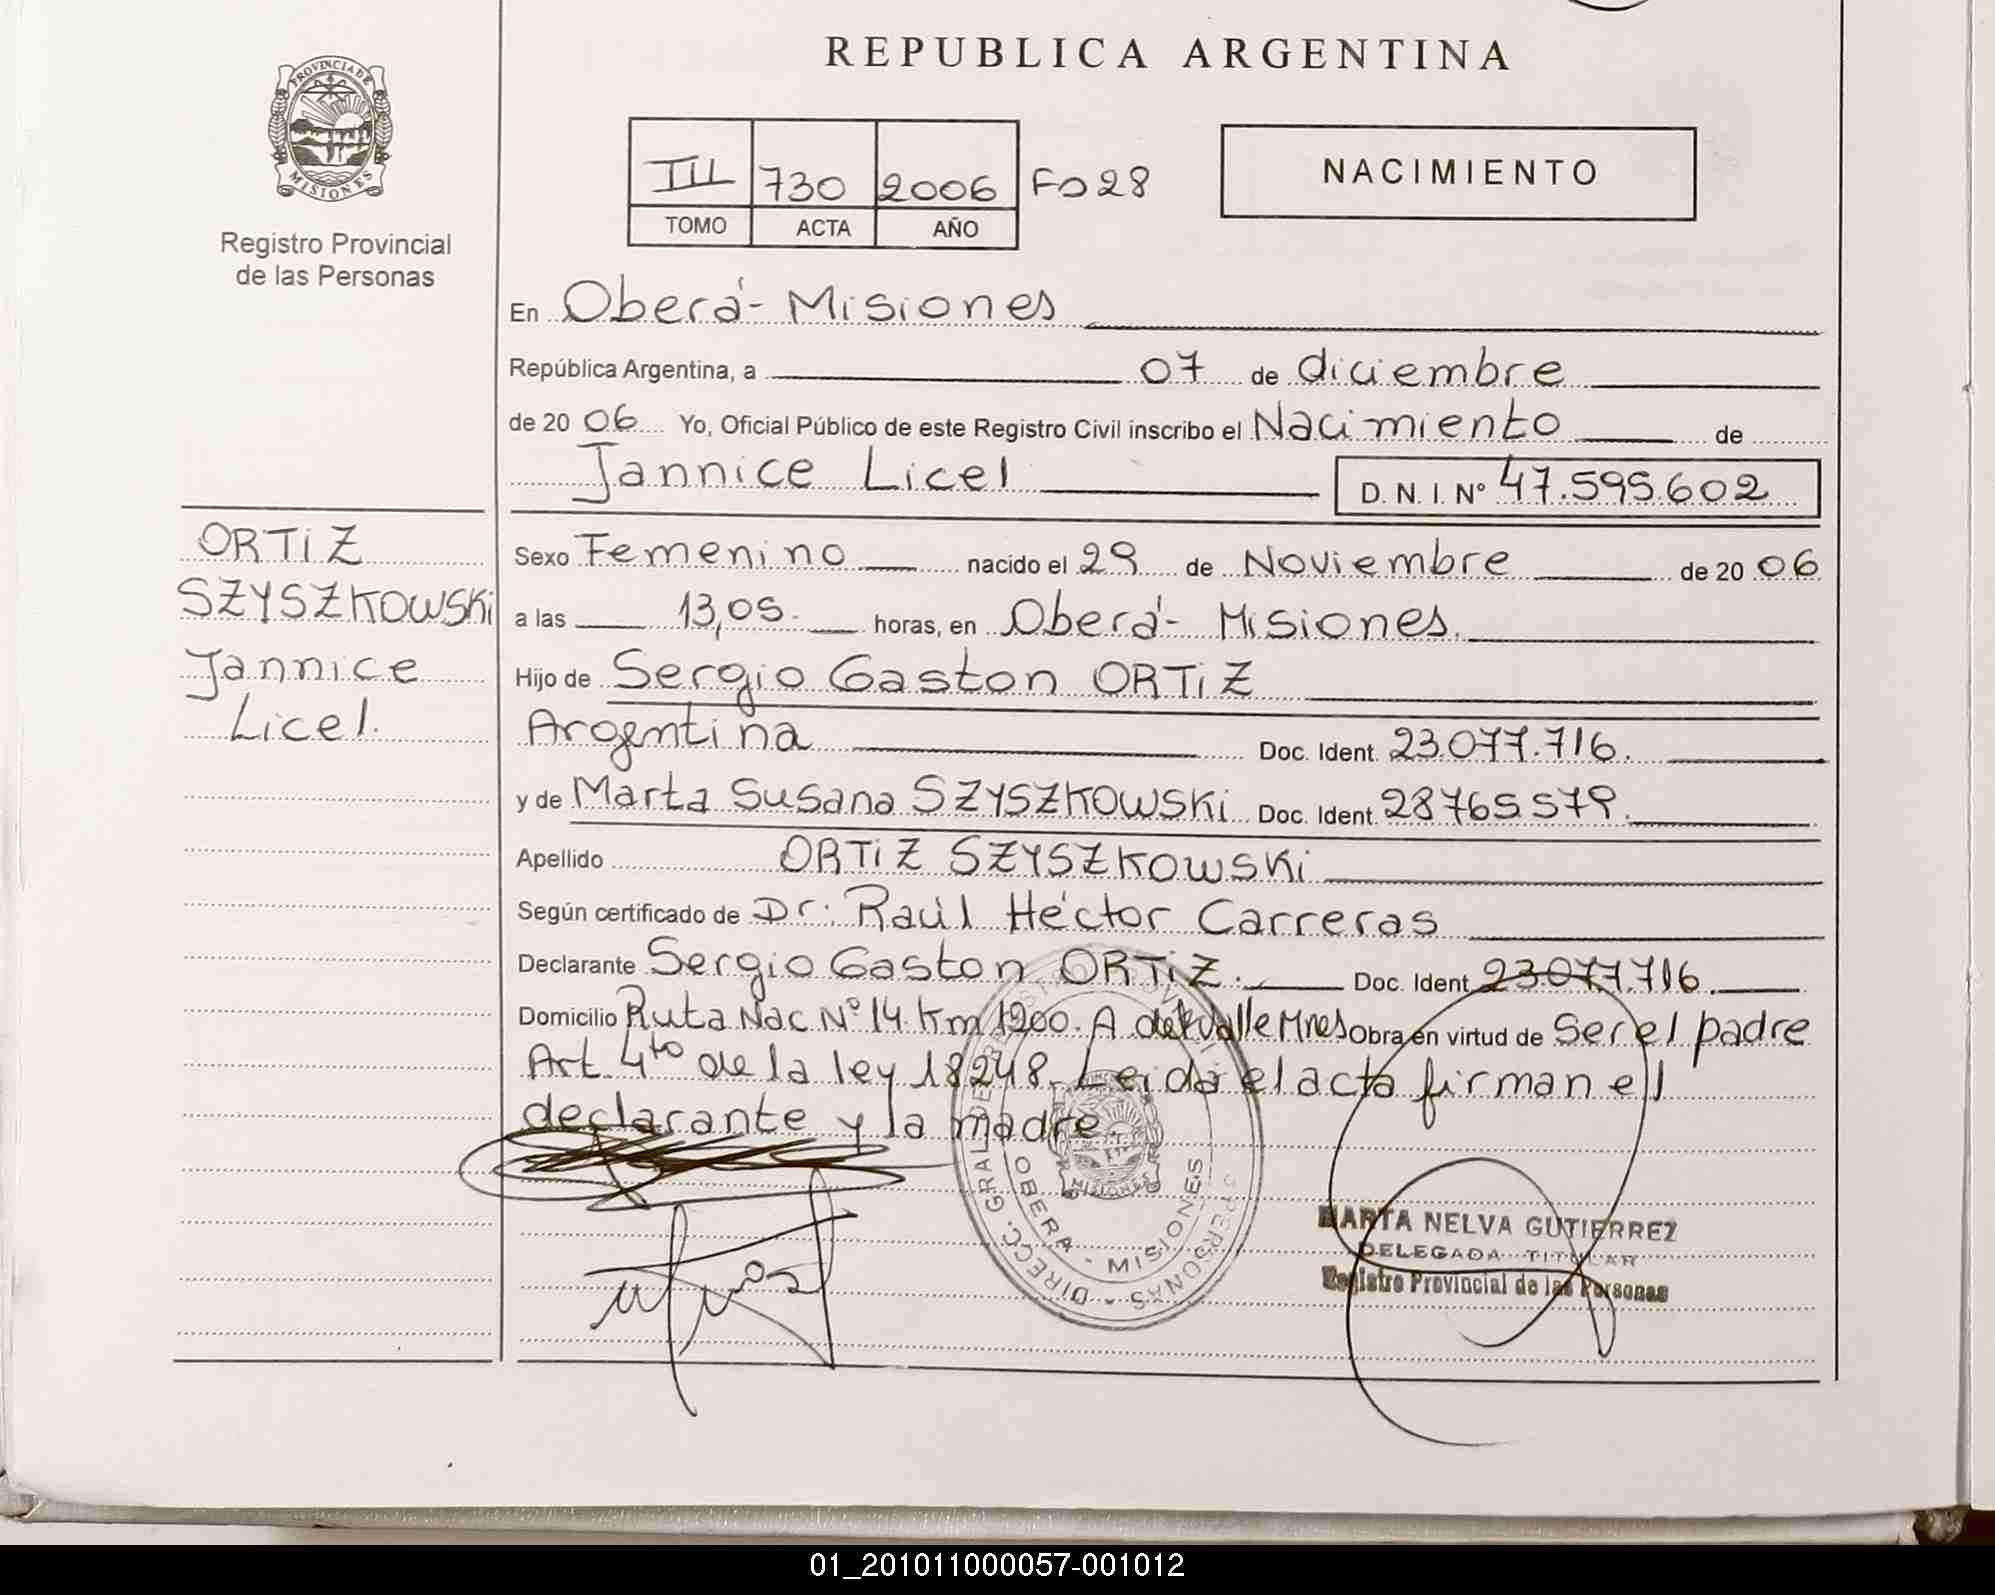 REPUBLICA ARGENTINA
PROVINCIA DE
MISIONES
Registro Provincial
de las Personas
III 730 2006 Fo 28
TOMO ACTA AÑO
NACIMIENTO
En Oberá - Misiones
República Argentina, a 07 de diciembre
de 20 06 Yo, Oficial Público de este Registro Civil inscribo el Nacimiento de
Jannice Licel D. N. I. Nº 47.595.602
ORTiZ
SZYSZKOWSKi
Jannice
Licel.
Sexo Femenino nacido el 29 de Noviembre de 20 06
a las 13,05. horas, en Oberá - Misiones.
Hijo de Sergio Gaston ORTiZ
Argentina Doc. Ident. 23.077.716.
y de Marta Susana SZYSZKOWSKi Doc. Ident. 28765579.
Apellido ORTiZ SZYSZKOWSKi
Según certificado de Dr: Raúl Héctor Carreras
Declarante Sergio Gaston ORTiZ. Doc. Ident 23.077.716.
Domicilio Ruta Nac Nº 14 Km 1200. A del Valle Mnes Obra en virtud de Ser el padre
Art. 4to de la ley 18248. Leida el acta firman el
declarante y la madre.
DIRECC. GRAL. DE REGISTRO PROVINCIAL PERSONAS
OBERA - MISIONES
MISIONES
MARTA NELVA GUTIERREZ
DELEGADA TITULAR
Registro Provincial de las Personas
01_201011000057-001012